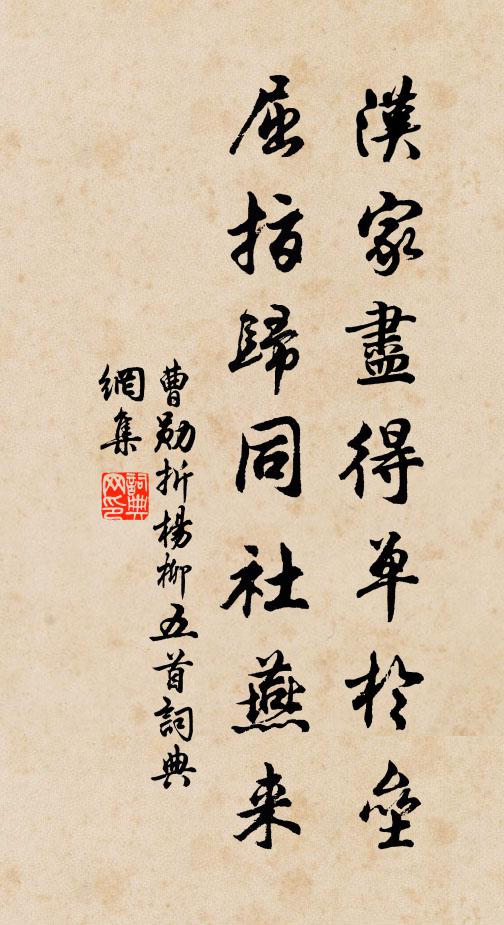 漢家盡得单於垒
屈指歸同社燕来
曹勛折楊柳五首詞典
網集
詞典网印